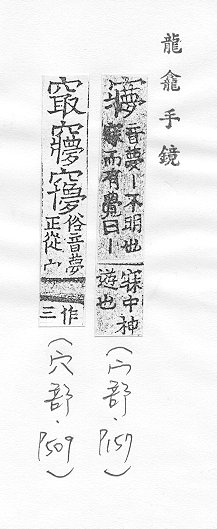 龍龕手鏡
𡬌音夢丨不明也
寐而有覺曰丨
寐中神
遊也
(宀部·P157)
俗音夢
正從宀
作
三
(穴部·P509)